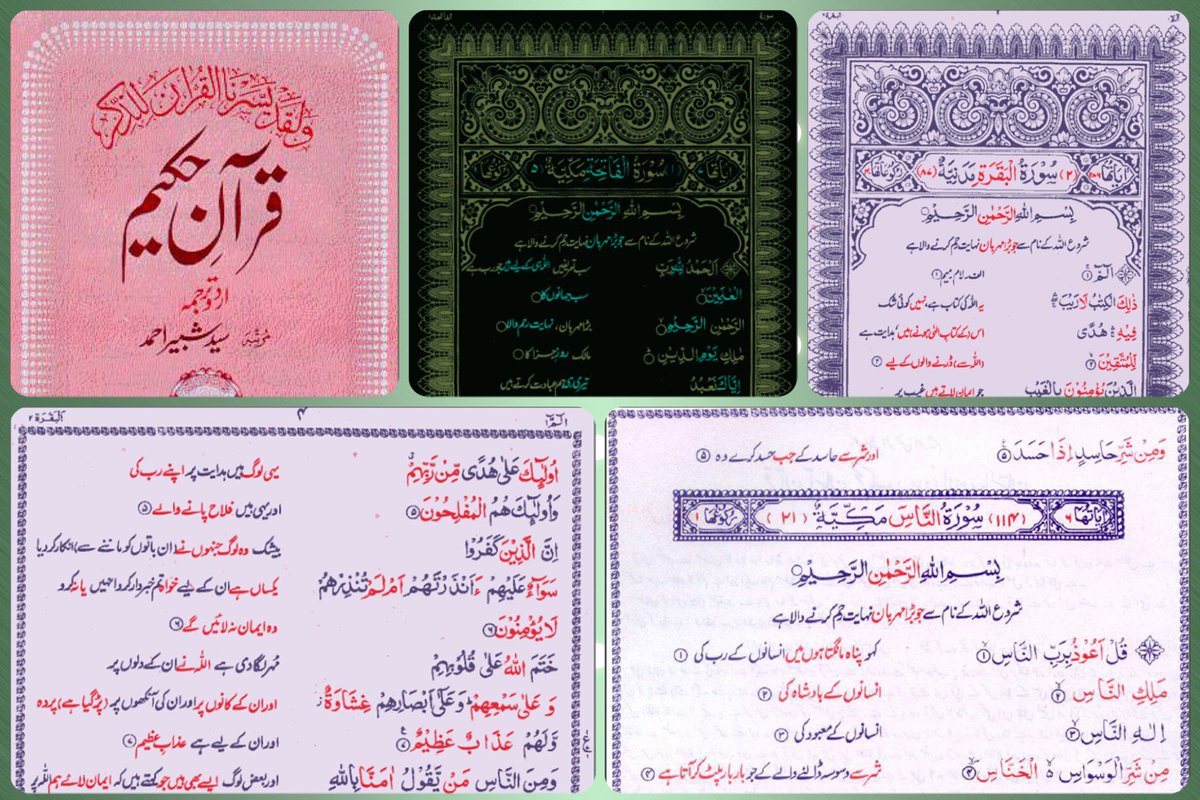 ولقد يسرنا القرآن للذكر
قرآنِ حکیم
اردو ترجمہ
مرتبہ
سید شبیر احمد
سورة
الفاتحة ١
اٰیاتها ٧
(١) سُوْرَةُ الْفَاتِحَةِ مَكِّيَّةٌ (٥)
رکوعها ١
بِسْمِ اللهِ الرَّحْمٰنِ الرَّحِيْمِ
شروع اللہ کے نام سے جو بڑا مہربان نہایت رحم کرنے والا ہے
اَلْحَمْدُ لِلّٰهِ رَبِّ سب تعریفیں اللہ ہی کے لیے ہیں جو رب ہے
الْعٰلَمِيْنَ سب جہانوں کا
الرَّحْمٰنِ الرَّحِيْمِ بڑا مہربان، نہایت رحم والا
مٰلِكِ يَوْمِ الدِّيْنِ مالک روزِ جزا کا
اِيَّاكَ نَعْبُدُ تیری ہی ہم عبادت کرتے ہیں
البقرة ٢
اٰیاتها ٢٨٦
(٢) سُوْرَةُ الْبَقَرَةِ مَدَنِيَّةٌ (٨٧)
رکوعاتها ٤٠
بِسْمِ اللهِ الرَّحْمٰنِ الرَّحِيْمِ
شروع اللہ کے نام سے جو بڑا مہربان نہایت رحم کرنے والا ہے
الٓمّٓ ۱ الف لام میم ۱
ذٰلِكَ الْكِتٰبُ لَا رَيْبَ یہ اللہ کی کتاب ہے، نہیں کوئی شک
فِيْهِ هُدًى اس (کے کتاب الٰہی ہونے) میں ہدایت ہے
لِّلْمُتَّقِيْنَ ۲ (اللہ سے) ڈرنے والوں کے لیے ۲
الَّذِيْنَ يُؤْمِنُوْنَ بِالْغَيْبِ جو ایمان لاتے ہیں غیب پر
الٓمّٓ ۱
۴
البقرة ٢
اُولٰٓئِكَ عَلٰى هُدًى مِّنْ رَّبِّهِمْ یہی لوگ ہیں ہدایت پر اپنے رب کی
وَاُولٰٓئِكَ هُمُ الْمُفْلِحُوْنَ ۵ اور یہی ہیں فلاح پانے والے ۵
اِنَّ الَّذِيْنَ كَفَرُوْا بیشک وہ لوگ جنہوں نے (ان باتوں کو ماننے سے) انکار کر دیا
سَوَآءٌ عَلَيْهِمْ ءَاَنْذَرْتَهُمْ اَمْ لَمْ تُنْذِرْهُمْ یکساں ہے ان کے لیے خواہ تم خبردار کرو انہیں یا نہ کرو
لَا يُؤْمِنُوْنَ ۶ وہ ایمان نہ لائیں گے ۶
خَتَمَ اللهُ عَلٰى قُلُوْبِهِمْ مہر لگا دی ہے اللہ نے ان کے دلوں پر
وَ عَلٰى سَمْعِهِمْ وَ عَلٰٓى اَبْصَارِهِمْ غِشَاوَةٌ اور ان کے کانوں پر اور ان کی آنکھوں پر (پڑ گیا ہے) پردہ
وَّلَهُمْ عَذَابٌ عَظِيْمٌ ۷ اور ان کے لیے ہے عذابِ عظیم ۷
وَمِنَ النَّاسِ مَنْ يَّقُوْلُ اٰمَنَّا بِاللهِ اور بعض لوگ ایسے بھی ہیں جو کہتے ہیں کہ ایمان لائے ہم اللہ پر
وَمِنْ شَرِّ حَاسِدٍ اِذَا حَسَدَ ۵ اور شر سے حاسد کے جب حسد کرے وہ ۵
اٰیاتها ٦
(١١٤) سُوْرَةُ النَّاسِ مَكِّيَّةٌ (٢١)
رکوعها ١
بِسْمِ اللهِ الرَّحْمٰنِ الرَّحِيْمِ
شروع اللہ کے نام سے جو بڑا مہربان نہایت رحم کرنے والا ہے
قُلْ اَعُوْذُ بِرَبِّ النَّاسِ ۱ کہو پناہ مانگتا ہوں میں انسانوں کے رب کی ۱
مَلِكِ النَّاسِ ۲ انسانوں کے بادشاہ کی ۲
اِلٰهِ النَّاسِ ۳ انسانوں کے معبود کی ۳
مِنْ شَرِّ الْوَسْوَاسِ الْخَنَّاسِ ۴ شر سے وسوسہ ڈالنے والے کے جو بار بار پلٹ کر آتا ہے ۴